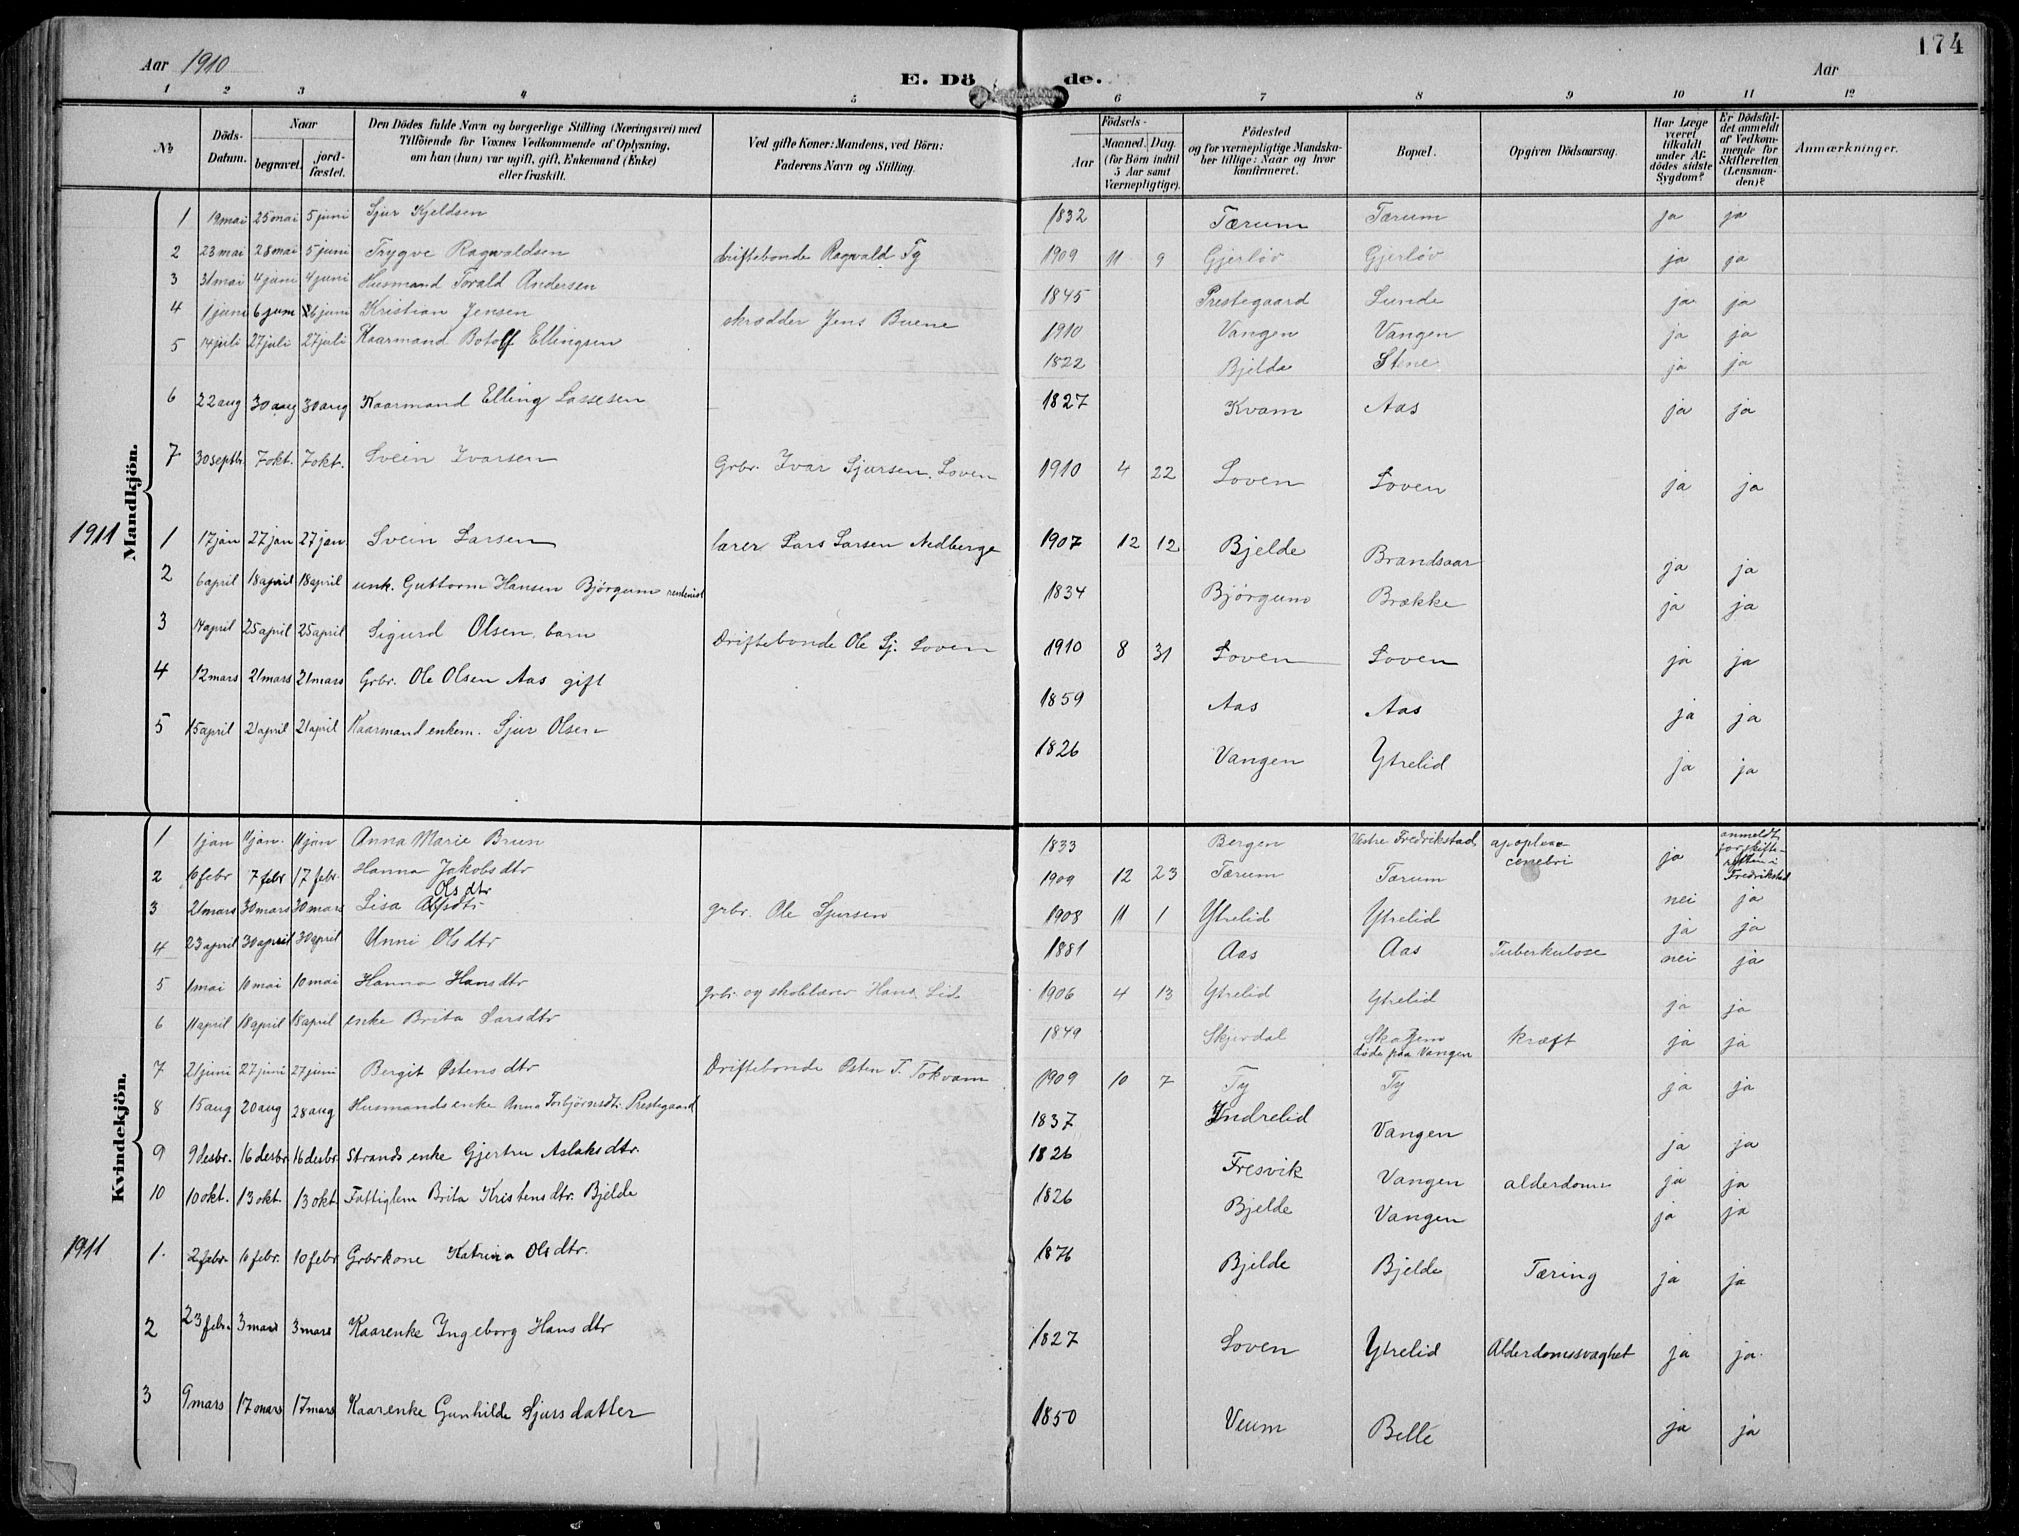 174
Aar 1910
E. Dö de.
Aar
1 2 3 4 5 6 7 8 9 10 11 12
№
Döds-Datum.
Naar
begravet.
jord-fæstet.
Den Dödes fulde Navn og borgerlige Stilling (Næringsvei) med
Tilföiende for Voxnes Vedkommende af Oplysning,
om han (hun) var ugift, gift, Enkemand (Enke)
eller fraskilt.
Ved gifte Koner: Mandens, ved Börn:
Faderens Navn og Stilling.
Födsels-
Aar
Maaned. Dag.
(for Börn indtil
5 Aar samt
Værnepligtige).
Födested
og for værnepligtige Mandska-
ber tillige: Naar og hvor
konfirmeret.
Bopæl.
Opgiven Dödsaarsag.
Har Læge
været
tilkaldt
under Af-
dödes sidste
Sygdom?
Er Dödsfal-
det anmeldt
af Vedkom-
mende for
Skifteretten
(Lensman-
den)?
Anmærkninger.
Mandkjön.
1 19 mai 25 mai 5 juni Sjur Kjeldsen 1832 Tærum Tærum ja ja
2 23 mai 28 mai 5 juni Trygve Ragvaldsen driftebonde Ragvald Ty 1909 11 9 Gjerløv Gjerløv ja ja
3 31 mai 4 juni 4 juni Husmand Torald Andersen 1845 Prestegaard Lunde ja ja
4 1 juni 6 juni 26 juni Kristian Jensen skrædder Jens Buene 1910 Vangen Vangen ja ja
5 14 juli 27 juli 27 juli Kaarmand Botolf Ellingsen 1822 Bjelde Stene ja ja
6 22 aug 30 aug 30 aug Kaarmand Elling Lassesen 1827 Kvam Aas ja ja
7 30 septbr. 7 okt. 7 okt. Svein Ivarsen Grbr. Ivar Sjursen, Loven 1910 4 22 Loven Loven ja ja
1911
1 17 jan 27 jan 27 jan. Svein Larsen lærer Lars Larsen Nedberge 1907 12 12 Bjelde Brandsaar ja ja
2 6 april 18 april 18 april unk. Guttorm Hansen Bjørgum rentenist 1834 Bjørgum Brække ja ja
3 14 april 25 april 25 april Sigurd Olsen, barn Driftebonde Ole Sj. Loven 1910 8 31 Loven Loven ja ja
4 12 mars 21 mars 21 mars Grbr. Ole Olsen Aas gift 1859 Aas Aas ja ja
5 15 april 21 april 21 april Kaarmand enkem. Sjur Olsen 1826 Vangen Ytrelid ja ja
Kvindekjön.
1 1 jan 11 jan. 11 jan Anna Marie Brun 1833 Bergen Vestre Fredrikstad ja anmeldt
2 6 febr 7 febr 17 febr. Hanna Jakobsdtr 1909 12 23 Tærum Tærum nei ja
Fredrikstad
Olsdtr
3 21 mars 30 mars 30 mars Lisa grbr. Ole Sjursen 1908 11 1 Ytrelid Ytrelid ja ja
4 23 april 30 april 30 april Unni Olsdtr 1881 Aas Aas Tuberkulose nei ja
5 1 mai 10 mai 10 mai Hanna Hansdtr grbr. og skolelærer Hans Lid 1906 4 13 Ytrelid Ytrelid ja ja
6 11 april 18 april 18 april enke Brita Larsdtr 1849 Skjerdal
døde paa Vangen kræft ja ja
7 21 juni 27 juni 27 juni Bergit Østensdtr Driftebonde Østen T. Tokvam 1909 10 7 Ty Ty ja ja
8 15 aug 20 aug 28 aug Husmandsenke Anna Torbjørnsdtr. Prestegaard 1837 Indrelid Vangen ja ja
9 9 desbr. 16 desbr. 16 desbr. Strandsenke Gjertru Aslaksdtr. 1826 Fresvik Vangen alderdom ja ja
10 10 okt. 13 okt. 13 okt. Fattiglem Brita Kristensdtr. Bjelde 1826 Bjelde Vangen ja ja
1911
1. 2 febr. 6 febr. 10 febr Grbrkone Katrina Olsdtr. 1876 Bjelde Bjelde Tæring ja ja
2 23 febr. 3 mars 3 mars Kaarenke Ingeborg Hansdtr 1827 Loven Ytrelid Alderdomssvaghet ja ja.
3 9 mars 17 mars 17 mars Kaarenke Gunhilde Sjursdatter 1850 Veum Belle ja ja